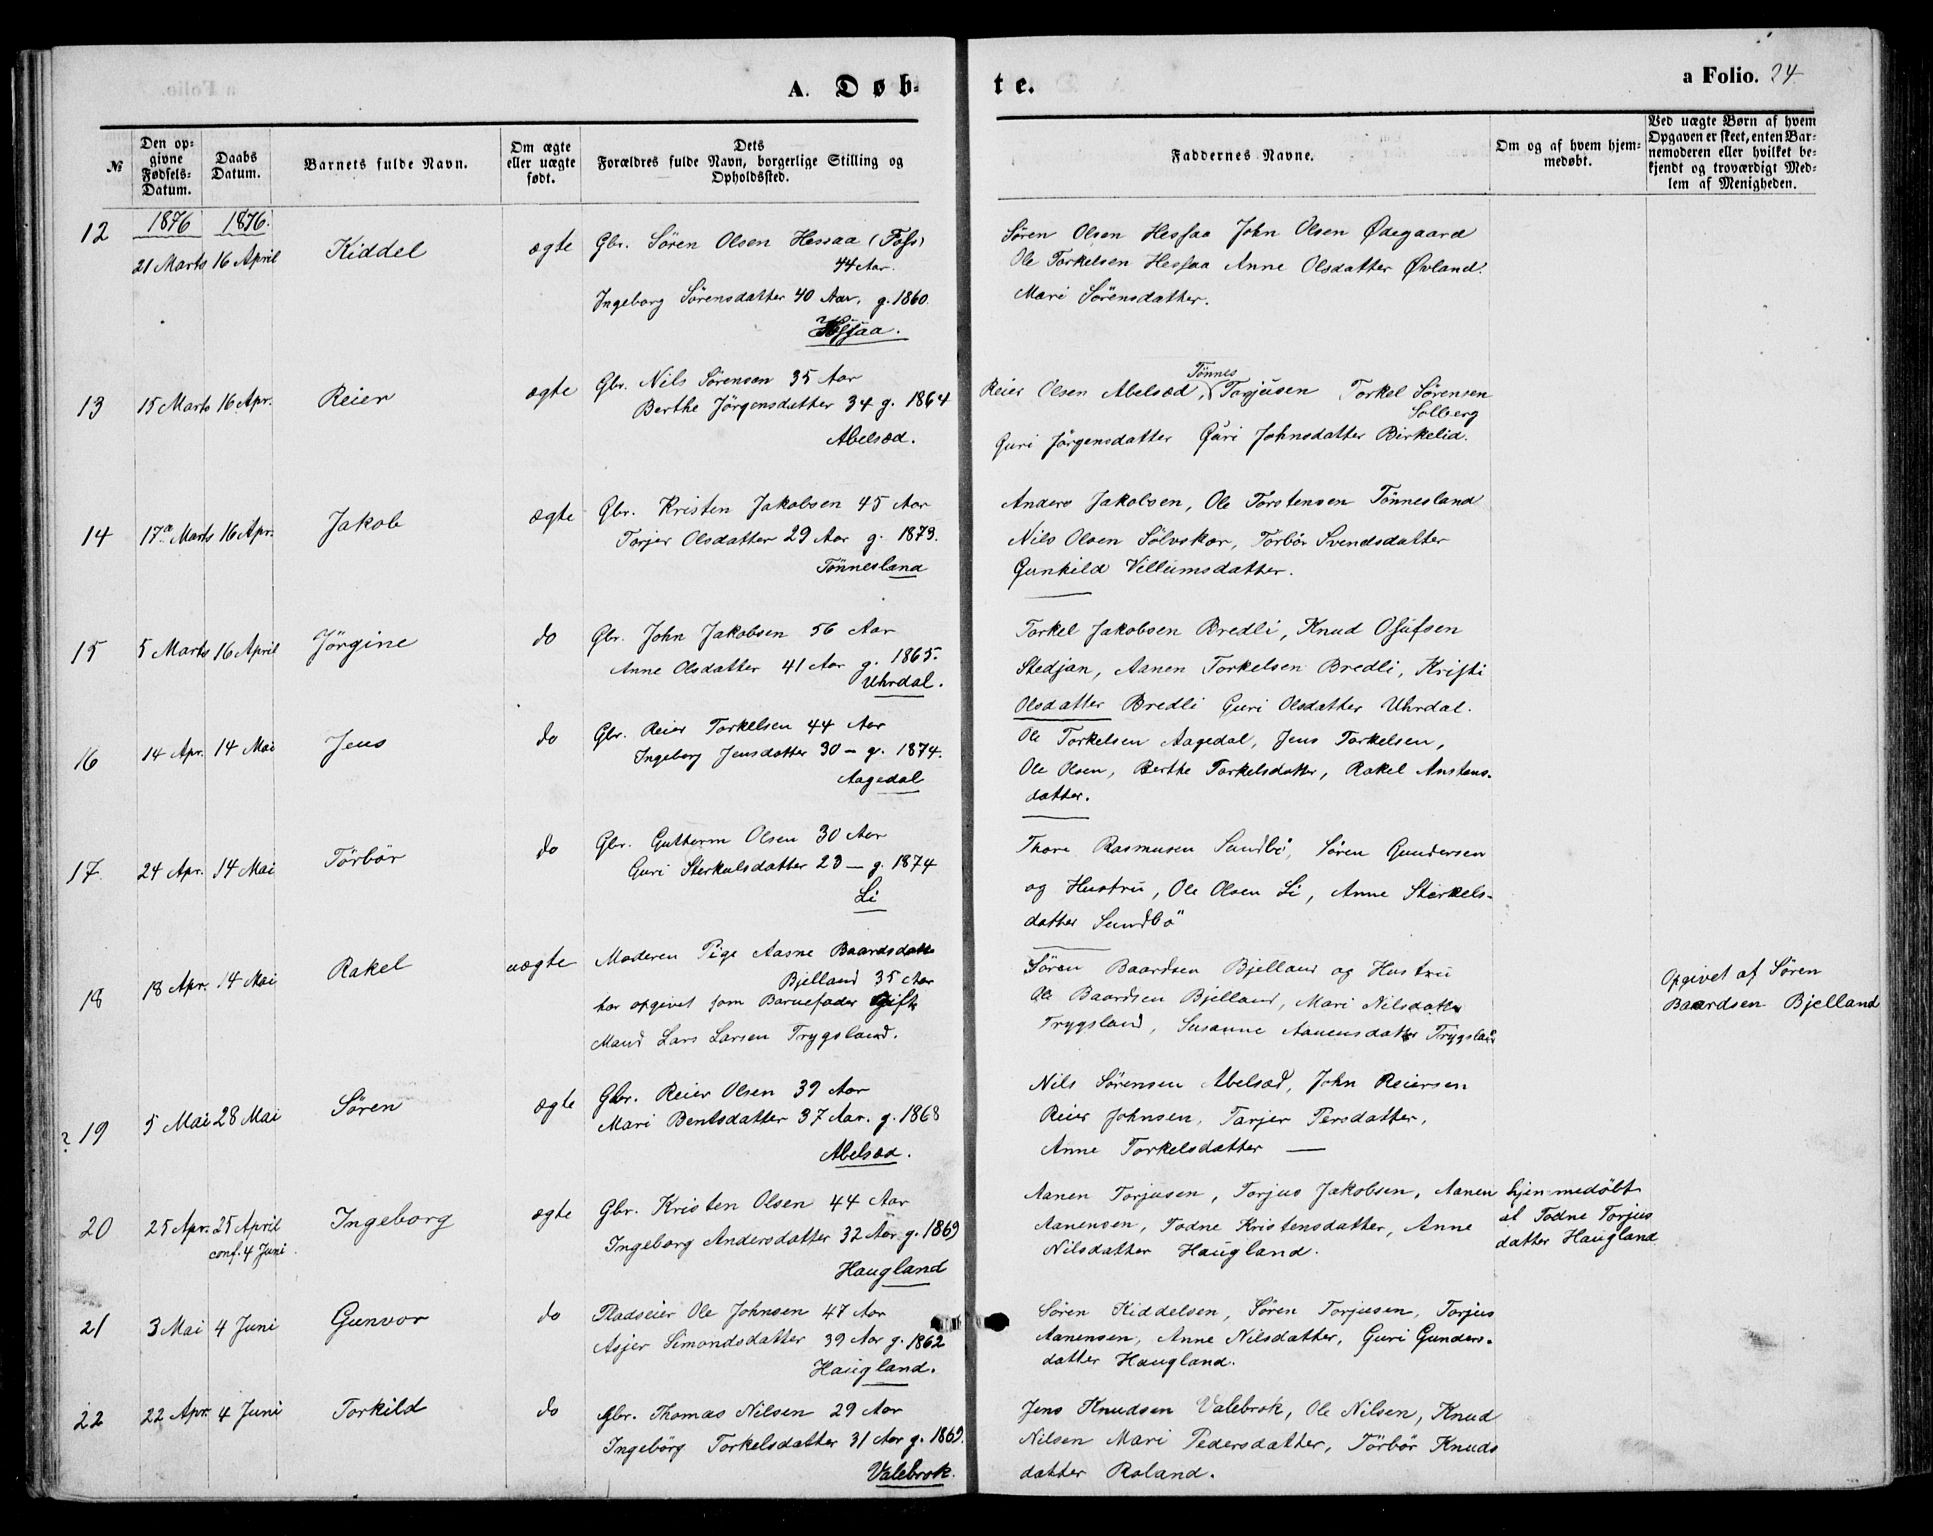 A. Døb-
te.
a Folio. 24
№
Den op-
givne
Fødsels-
Datum.
Daabs
Datum.
Barnets fulde Navn.
Om ægte
eller uægte
født.
Dets
Forældres fulde Navn, borgerlige Stilling og
Opholdssted.
Faddernes Navne.
Om og af hvem hjem-
medøbt.
Ved uægte Børn af hvem
Opgaven er skeet, enten Bar-
nemoderen eller hvilket be-
kjendt og troværdigt Med-
lem af Menigheden.
1876 1876.
12 21 Marts 16 April Kiddel ægte Gbr. Sören Olsen Hessaa (Foss)
44 Aar.
Ingeborg Sörensdatter 40 Aar, g. 1860.
Hessaa.
Sören Olsen Hessaa John Olsen Ødegaard
Ole Torkelsen Hessaa Anne Olsdatter Øvland.
Mari Sörensdatter.
13 15 Marts 16 Apr. Reier ægte Gbr. Nils Sörensen 35 Aar
Berthe Jörgensdatter 34 g. 1864
Abelsæd.
Tönnes
Reier Olsen Abelsæd, Torjusen Torkel Sörensen
Solberg
Guri Jörgensdatter Guri Johnsdatter Birkelid.
14 17de Marts 16 Apr. Jakob ægte Gbr. Kristen Jakobsen 45 Aar
Torjer Olsdatter 29 Aar g. 1873.
Tönnesland
Anders Jakobsen, Ole Torstensen Tönnesland
Nils Olsen Sölvskar, Torbör Svendsdatter
Gunhild Villumsdatter.
15 5 Marts 16 April Jörgine do Gbr. John Jakobsen 56 Aar
Anne Olsdatter 41 Aar g. 1865.
Uhrdal.
Torkel Jakobsen Bredli, Knud Osufsen
Stedjan, Aanen Torkelsen Bredli, Kristi
Olsdatter Bredli Guri Olsdatter Uhrdal.
16 14 Apr. 14 Mai Jens do Gbr. Reier Torkelsen 44 Aar
Ingeborg Jensdatter 30 — g. 1874.
Aagedal
Ole Torkelsen Aagedal, Jens Torkelsen,
Ole Olsen, Berthe Torkelsdatter, Rakel Anstens-
datter.
17. 24 Apr. 14 Mai Törbör do Gbr. Gutterm Olsen 30 Aar
Guri Sterkulsdatter 23 — g. 1874
Li
Thore Rasmusen Sundbö, Sören Gundersen
og Hustru, Ole Olsen Li, Anne Sterkels-
datter Sundbö
18 18 Apr. 14 Mai Rakel uægte Moderen Pige Aasne Baardsdatter
Bjelland 35 Aar
har opgivet som Barnefader Gift
Mand Lars Larsen Trygsland.
Sören Baardsen Bjelland og Hustru
Ole Baardsen Bjelland, Mari Nilsdatter
Trygsland, Susanne Aanensdatter Trygsland
Opgivet af Sören
Baardsen Bjelland
19 5 Mai 28 Mai Sören ægte Gbr. Reier Olsen 39 Aar
Mari Bentsdatter 37 Aar. g. 1868
Abelsæd.
Nils Sörensen Abelsæd, John Reiersen
Reier Johnsen, Tarjer Persdatter,
Anne Torkelsdatter —
20 25 Apr. 25 April Ingeborg ægte Gbr. Kristen Olsen 44 Aar
conf. 4 Juni.
Ingeborg Andersdatter 32 Aar g. 1869
Haugland
Aanen Torjusen, Torjus Jakobsen, Aanen
Aanensen, Todne Kristensdatter, Anne
Nilsdatter Haugland.
hjemmedöbt
af Todne Torjus
datter Haugland
21 3 Mai 4 Juni Gunvor do Pladseier Ole Johnsen 47 Aar
Asjer Simondsdatter 39 Aar g. 1862
Haugland.
Sören Kiddelsen, Sören Torjusen, Torjus
Aanensen, Anne Nilsdatter, Guri Gunders-
datter Haugland.
22 22 Apr. 4 Juni Torkild do Gbr. Thomas Nilsen 29 Aar
Ingebörg Torkelsdatter 31 Aar g. 1869.
Valebrok.
Jens Knudsen Valebrok, Ole Nilsen, Knud
Nilsen Mari Pedersdatter, Törbör Knuds
datter Roland.